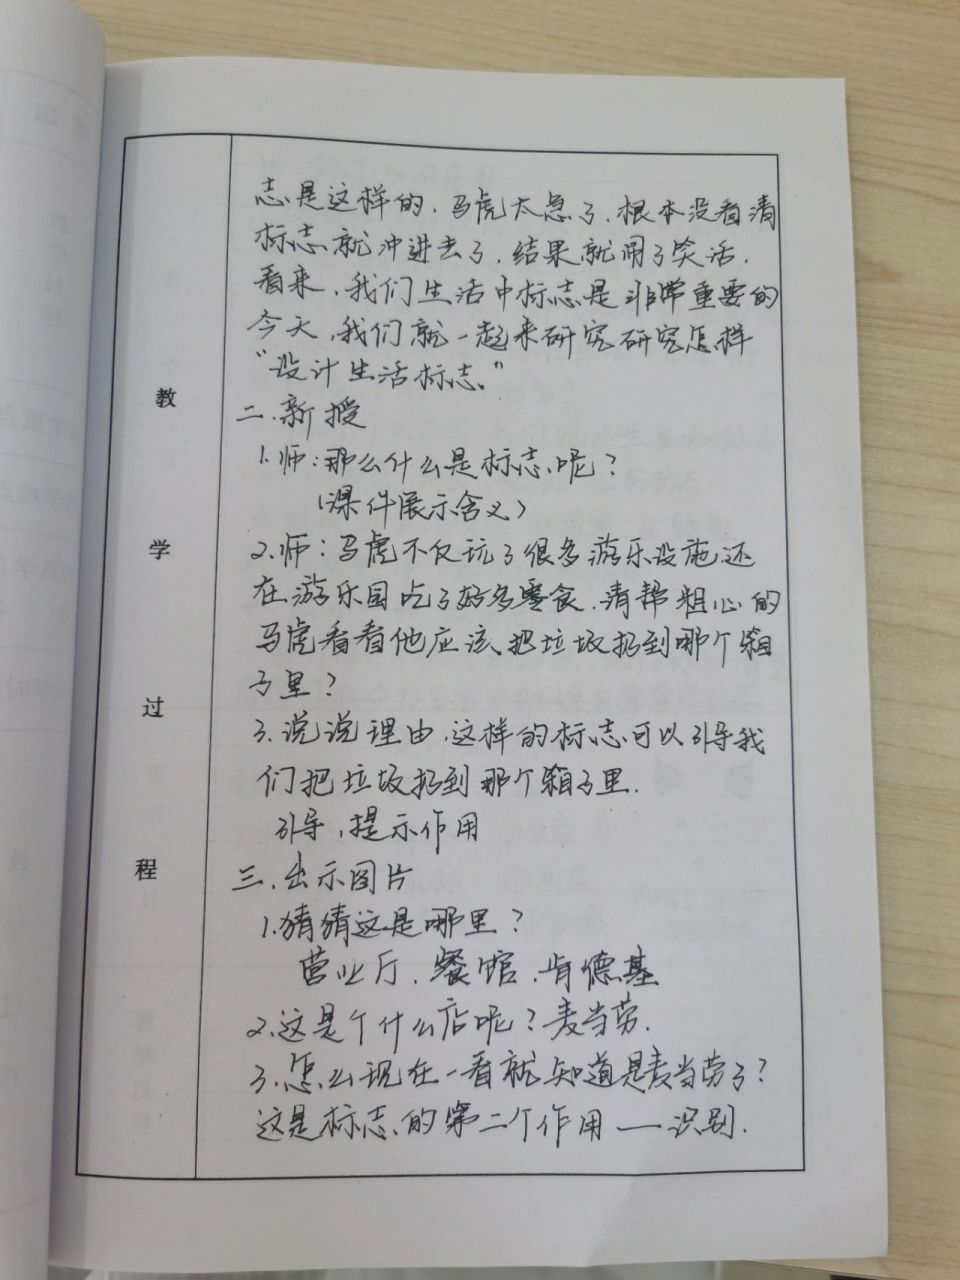 教学过程
志是这样的，马虎太急了，根本没看清
标志就冲进去了，结果就闹了笑话，
看来，我们生活中标志是非常重要的
今天，我们就一起来研究研究怎样
“设计生活标志。”
二、新授
1、师：那么什么是标志呢？
（课件展示含义）
2、师：马虎不仅玩了很多游乐设施，还
在游乐园吃了好多零食，请帮粗心的
马虎看看他应该把垃圾扔到哪个箱
子里？
3、说说理由，这样的标志可以引导我
们把垃圾扔到那个箱子里.
引导，提示作用
三、出示图片
1、猜猜这是哪里？
营业厅、餐馆、肯德基
2、这是个什么店呢？麦当劳.
3、怎么现在一看就知道是麦当劳了？
这是标志的第二个作用——识别.